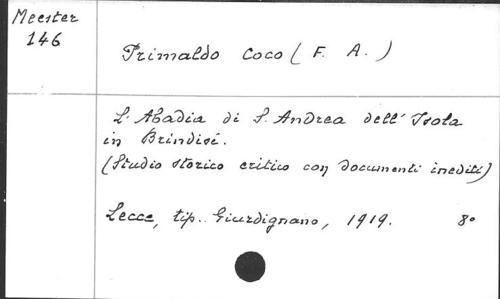 Meester
146
Primaldo Coco (F. A.)
L'Abadia di S. Andrea dell'Isola
in Brindisi.
(Studio storico critico con documenti inediti)
Lecce, tip. Giurdignano, 1919. 8°